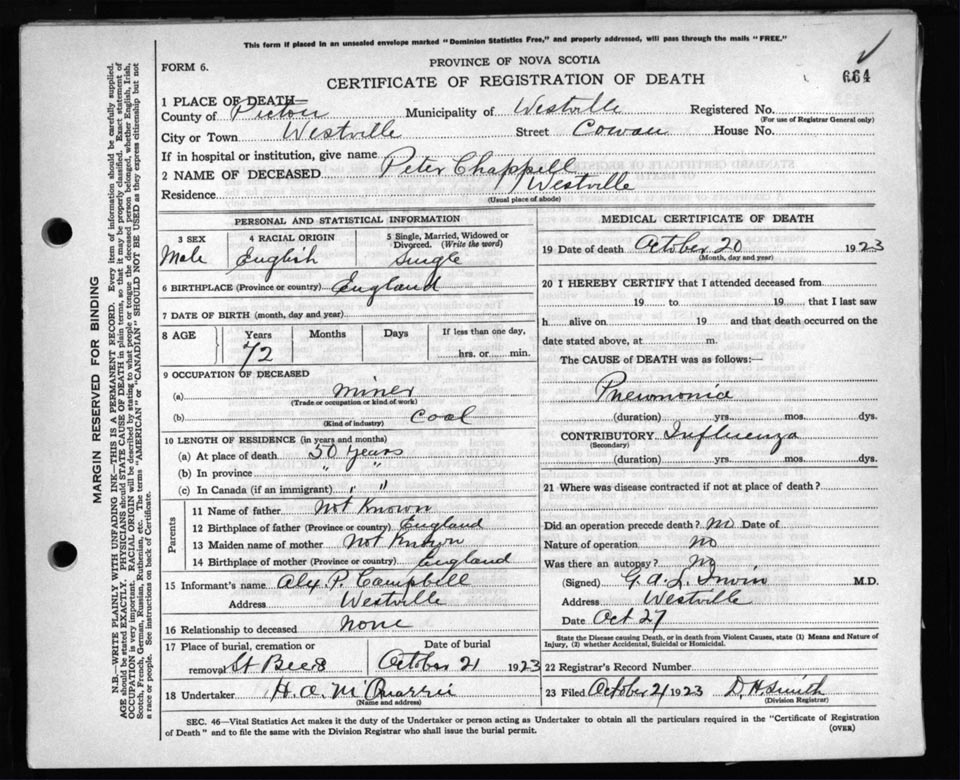 This form if placed in an unsealed envelope marked "Dominion Statistics Free," and properly addressed, will pass through the mails "FREE."
FORM 6.
PROVINCE OF NOVA SCOTIA
664
CERTIFICATE OF REGISTRATION OF DEATH
1 PLACE OF DEATH—
County of Pictou Municipality of Westville Registered No.
(For use of Registrar General only)
City or Town Westville Street Cowan House No.
If in hospital or institution, give name
2 NAME OF DECEASED Peter Chappell
Residence Westville
(Usual place of abode)
PERSONAL AND STATISTICAL INFORMATION
3 SEX 4 RACIAL ORIGIN 5 Single, Married, Widowed or
Divorced. (Write the word)
Male English Single
6 BIRTHPLACE (Province or country) England
7 DATE OF BIRTH (month, day and year)
8 AGE Years Months Days If less than one day,
72 hrs. or min.
9 OCCUPATION OF DECEASED
(a) miner
(Trade or occupation or kind of work)
(b) Coal
(Kind of industry)
10 LENGTH OF RESIDENCE (in years and months)
(a) At place of death 50 years
(b) In province " "
(c) In Canada (if an immigrant) " "
Parents
11 Name of father Not Known
12 Birthplace of father (Province or country) England
13 Maiden name of mother Not Known
14 Birthplace of mother (Province or country) England
15 Informant's name Alex P. Campbell
Address Westville
16 Relationship to deceased none
17 Place of burial, cremation or Date of burial
removal St Bees October 21 1923
18 Undertaker H. A. McQuarrie
(Name and address)
MEDICAL CERTIFICATE OF DEATH
19 Date of death October 20 1923
(Month, day and year)
20 I HEREBY CERTIFY that I attended deceased from
19 to 19 , that I last saw
h alive on 19 and that death occurred on the
date stated above, at m.
The CAUSE of DEATH was as follows:—
Pneumonia
(duration) yrs. mos. dys.
CONTRIBUTORY Influenza
(Secondary)
(duration) yrs. mos. dys.
21 Where was disease contracted if not at place of death?
Did an operation precede death? No Date of
Nature of operation No
Was there an autopsy? No
(Signed) G. A. L. Irwin M.D.
Address Westville
Date Oct 27
State the Disease causing Death, or in death from Violent Causes, state (1) Means and Nature of
Injury, (2) whether Accidental, Suicidal or Homicidal.
22 Registrar's Record Number
23 Filed October 21 1923 D. H. Smith
(Division Registrar)
SEC. 46—Vital Statistics Act makes it the duty of the Undertaker or person acting as Undertaker to obtain all the particulars required in the "Certificate of Registration
of Death" and to file the same with the Division Registrar who shall issue the burial permit. (OVER)
MARGIN RESERVED FOR BINDING
N.B.—WRITE PLAINLY WITH UNFADING INK—THIS IS A PERMANENT RECORD. Every item of information should be carefully supplied.
AGE should be stated EXACTLY. PHYSICIANS should STATE CAUSE OF DEATH in plain terms, so that it may be properly classified. Exact statement of
OCCUPATION is very important. RACIAL ORIGIN will be described by stating to what people or tongue the deceased person belonged, whether English, Irish,
Scotch, French, German, Russian, Ruthenian, etc. The terms "AMERICAN" or "CANADIAN" SHOULD NOT BE USED as they express citizenship but not
a race or people. See instructions on back of Certificate.